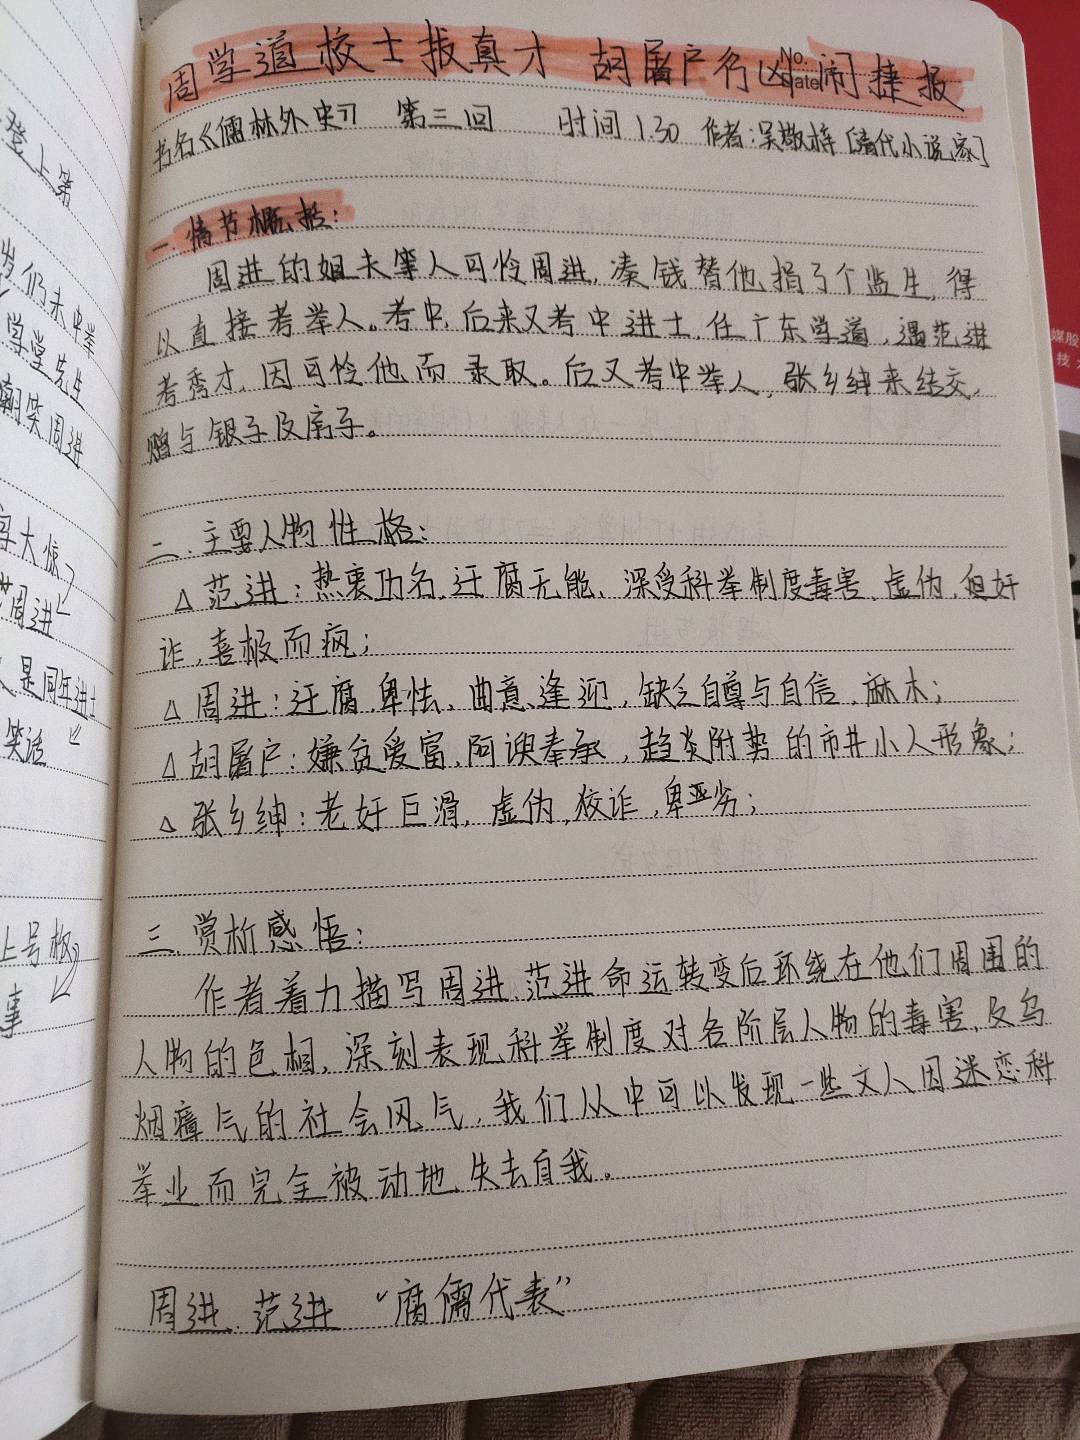 周学道校士拔真才 胡屠户行凶闹捷报
No.
Date
书名《儒林外史》 第三回 时间 1.30 作者:吴敬梓[清代小说家]
一.情节概括:
周进的姐夫等人可怜周进,凑钱替他捐了个监生,得
以直接考举人。考中,后来又考中进士,任广东学道,遇范进
考秀才,因可怜他而录取。后又考中举人,张乡绅来结交,
赠与银子及房子。
二.主要人物性格:
△范进:热衷功名、迂腐无能、深受科举制度毒害、虚伪、奸
诈,喜极而疯;
△周进:迂腐、卑怯、曲意逢迎,缺乏自尊与自信,麻木;
△胡屠户:嫌贫爱富、阿谀奉承,趋炎附势的市井小人形象;
△张乡绅:老奸巨滑,虚伪,狡诈,卑劣;
三.赏析感悟:
作者着力描写周进、范进命运转变后环绕在他们周围的
人物的色相,深刻表现科举制度对各阶层人物的毒害,及乌
烟瘴气的社会风气,我们从中可以发现一些文人因迷恋科
举业而完全被动地失去自我。
周进、范进 “腐儒代表”
登上第
岁仍未中举
学堂先生
嘲笑周进
大惊
周进
是同年进士
笑话
上号板
事
媒股
技